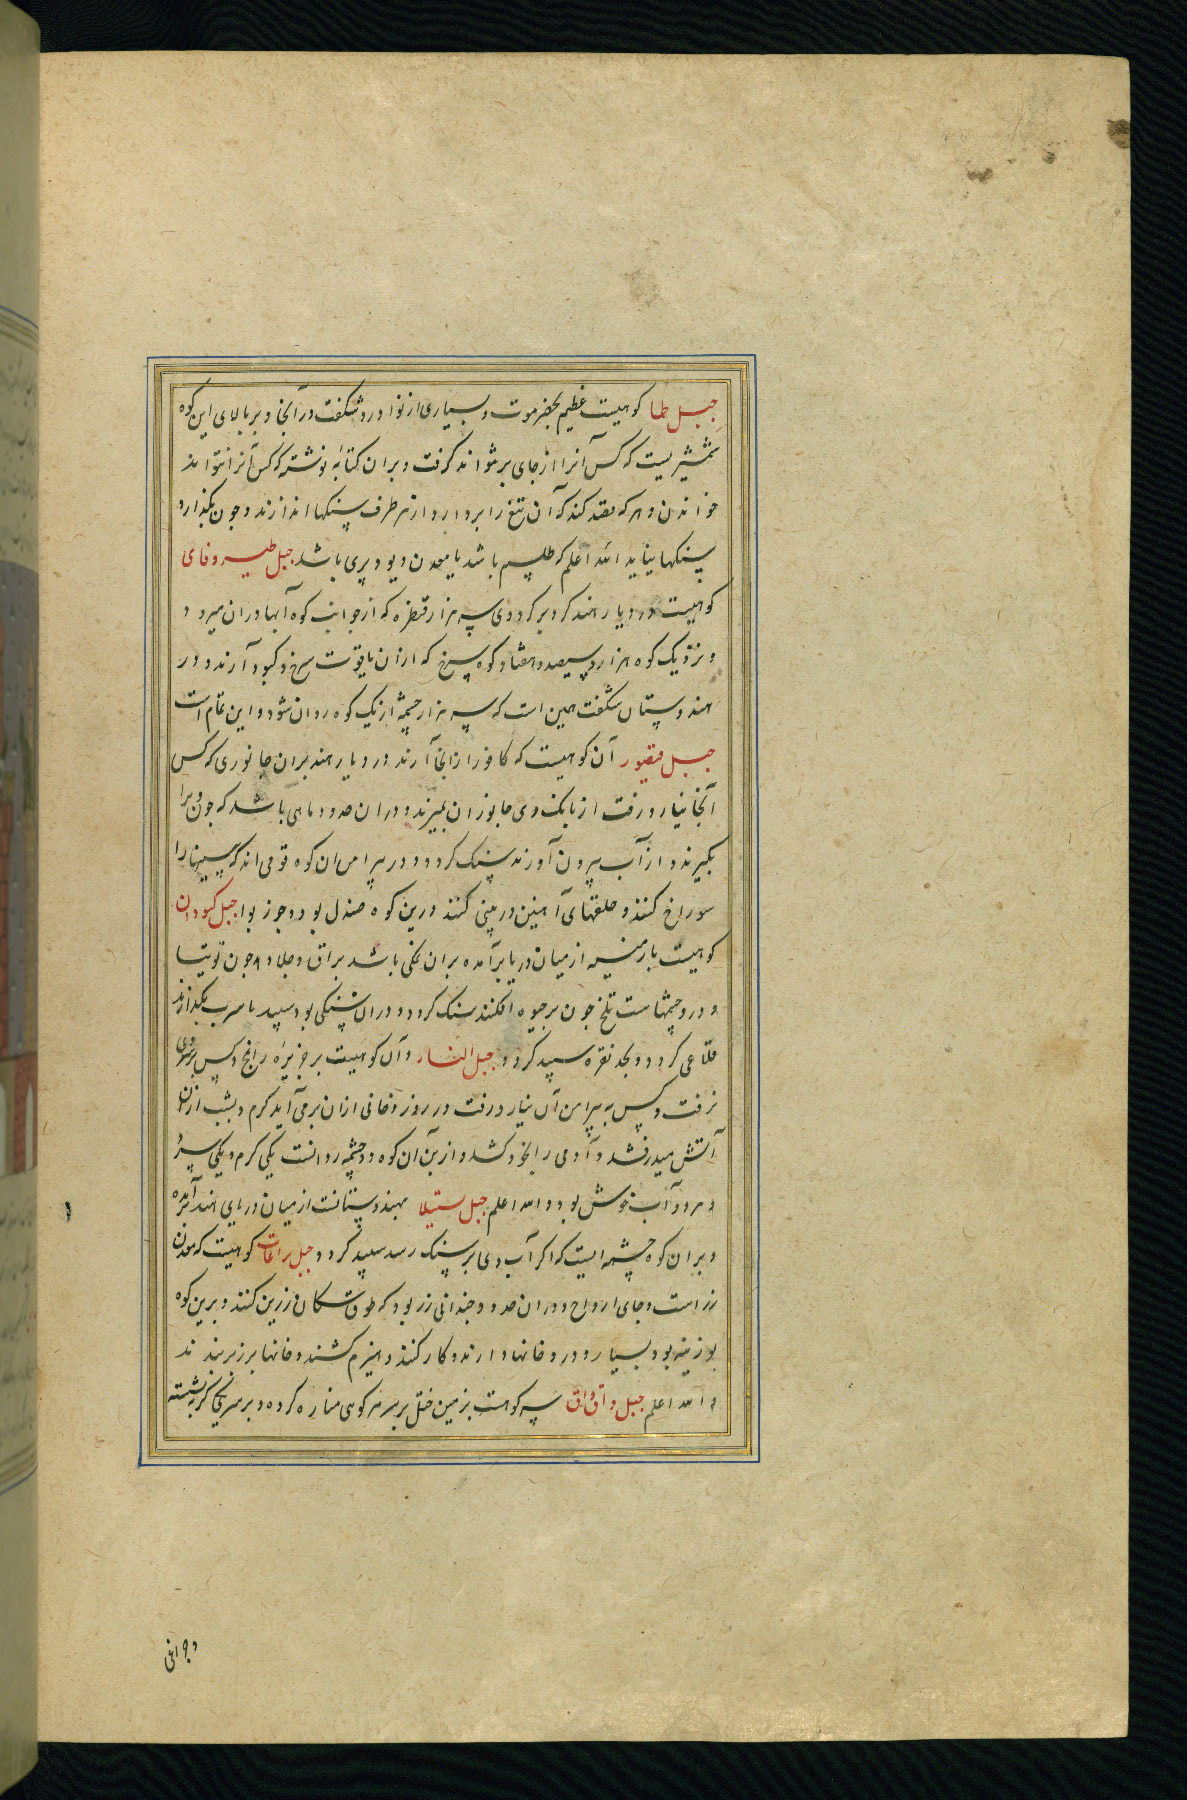 جبل طا کوهیست عظیم بحضرموت و بسیاری از نوادر و شکفت در آنجا و بر بالای این کوه
شمشیریست که کس آنرا از جای برنتواند کرفت و بران کتابه نوشته که کس آنرا نتواند
خواندن و هر که قصد کند که آن تیغ را بردارد از هر طرف سنکها اندازند و چون بکذارد
سنکها نیاید الله اعلم که طلسم باشد یا معدن دیو و پری باشد جبل
کوهیست در دیار هند کرد بر کرد وی سه هزار قنطره که از جوانب کوه آبها دران میرود
و نزدیک کوه هزار و سیصد و هفتاد کوه سرخ که ازان یاقوت سرخ و کبود آرند و در
هندوستان شکفت همین است که سه هزار چشمه از یک کوه روان شود و این تمام است
جبل آن کوهیست که کافور از انجا آرند در دیار هند بران جانوری که کس
آنجا نیارد رفت از بانک وی جانوران بمیرند و دران حدود ماهی باشد که چون ویرا
بکیرند و از آب بیرون آورند سنک کردد و در پیرامن ان کوه قومی اند که بینیها را
سوراخ کنند و حلقهای آهنین در بینی کنند درین کوه صندل بود و جوز بوا جبل کبودان
کوهیست بارمنیه از میان دریا برآمده بران نمکی باشد براق و جلا دهد چون توتیا
و درو چشمهاست تلخ چون بر جیوه افکنند سنک کردد و دران سنکی بود سپید با سرب بکدازند
قلاعی کردد و بحد نقره سپید کردد جبل النار و آن کوهیست بر جزیرۀ رانج و کس بر سر وی
نرفت و کس به پیرامن آن نیارد رفت در روز دخانی ازان برمی آید کرم و بشب ازان
آتش میدرفشد و آدمی را بخود کشد و از بن آن کوه دو چشمه روانست یکی کرم و یکی سرد
و هر دو آب خوش بود والله اعلم جبل ستیلا بهندوستانست از میان دریای هند برآمده
و بران کوه چشمه ایست که اکر آب وی بر سنک رسد سپید کردد جبل کوهیست که معدن
زر است و جای ارواح و دران حدود چندانی زر بود که طوق سکان زرین کنند و برین کوه
بوزینه بود بسیار و درو خانها دارند و کار کنند و هیزم کشند و خانها بر زبر بندند
والله اعلم جبل واق واق سه کوهست بزمین ختل بر سر هر کوهی مناره کرده و بر سر یکی کربه نشسته